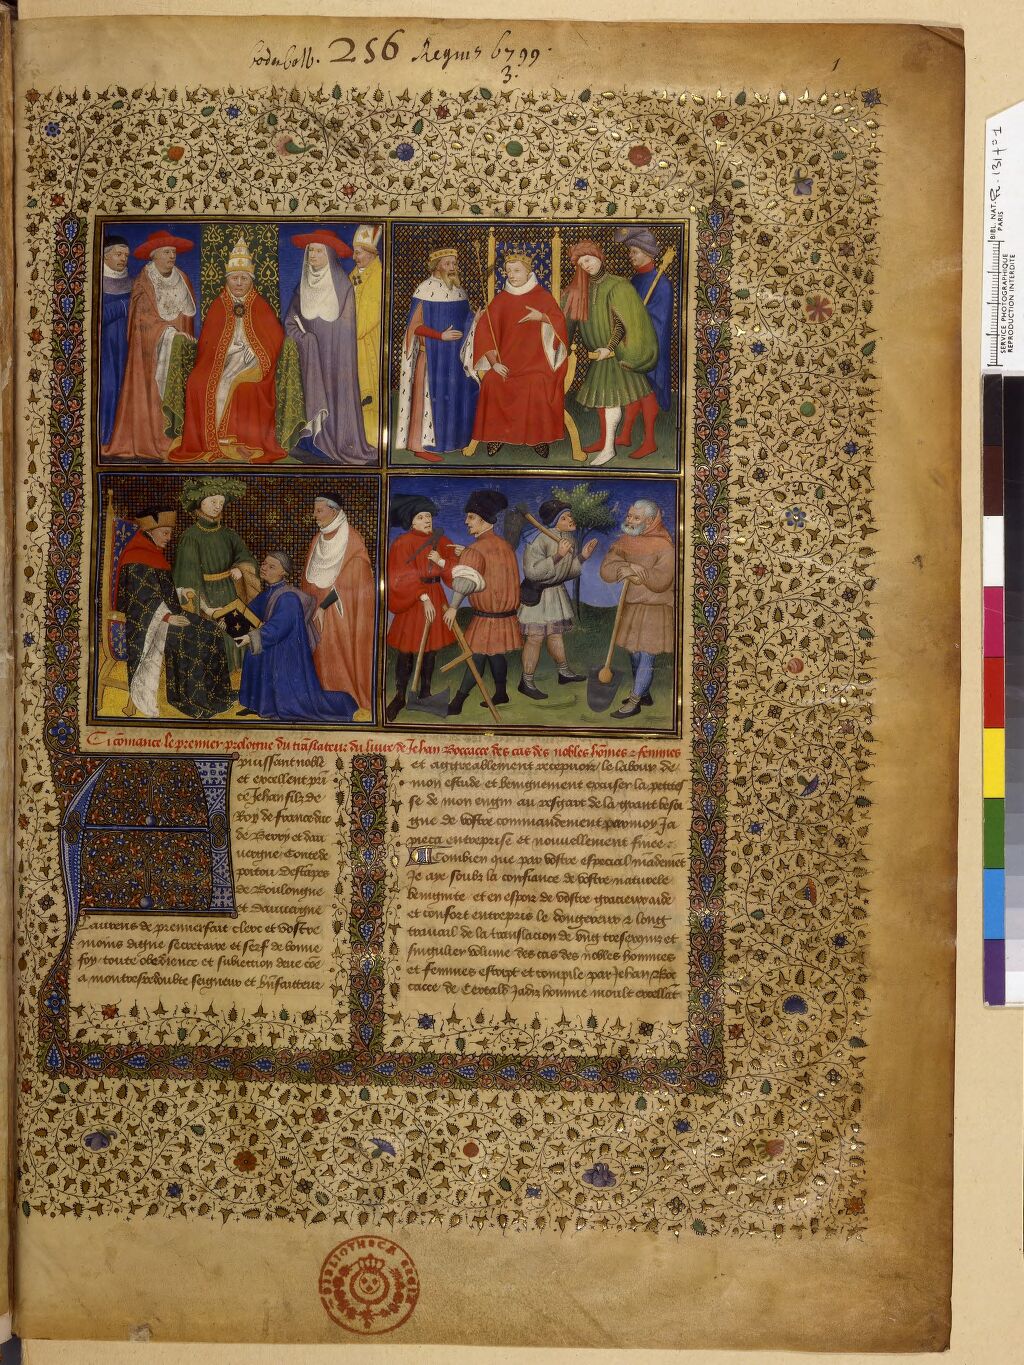 256 Regius 6799
3.
1
BIBL. NAT.
PARIS
SERVICE PHOTOGRAPHIQUE
REPRODUCTION INTERDITE
Ci cōmance le premier prologue du trāslateur du livre de Jehan Boccacce des cas des nobles hōmes & femmes
A puissant noble
et excellent prī
ce Jehan filz de
Roy de france duc
de Berry et dau
uergne Conte de
poitou Destāpes
de Boulongne
et dauuergne
Laurens de premierfait clerc et vostre
moins digne secretaire et serf de bonne
foy toute obedience et subiection deue cōe
a mon tresredoubte seigneur et biēfaitteur
et aggreablement reception le labour de
mon estude et benignement excuser la petites
se de mon engin au resgart de la grant beso
gne de vostre commandement par moy Ja
pieca entreprise et nouuellement finee
Combien que par vostre especial mandemēt
Je aye soubz la confiance de vostre naturele
benignite et en espoir de vostre gracieux aide
et confort entrepris le dongereux & long
trauail de la translacion de vng tresexquis et
singulier volume des cas des nobles hommes
et femmes escript et compile par Jehan Boc
cacce de Certald Jadiz homme moult excellāt
BIBLIOTHECA REGIA